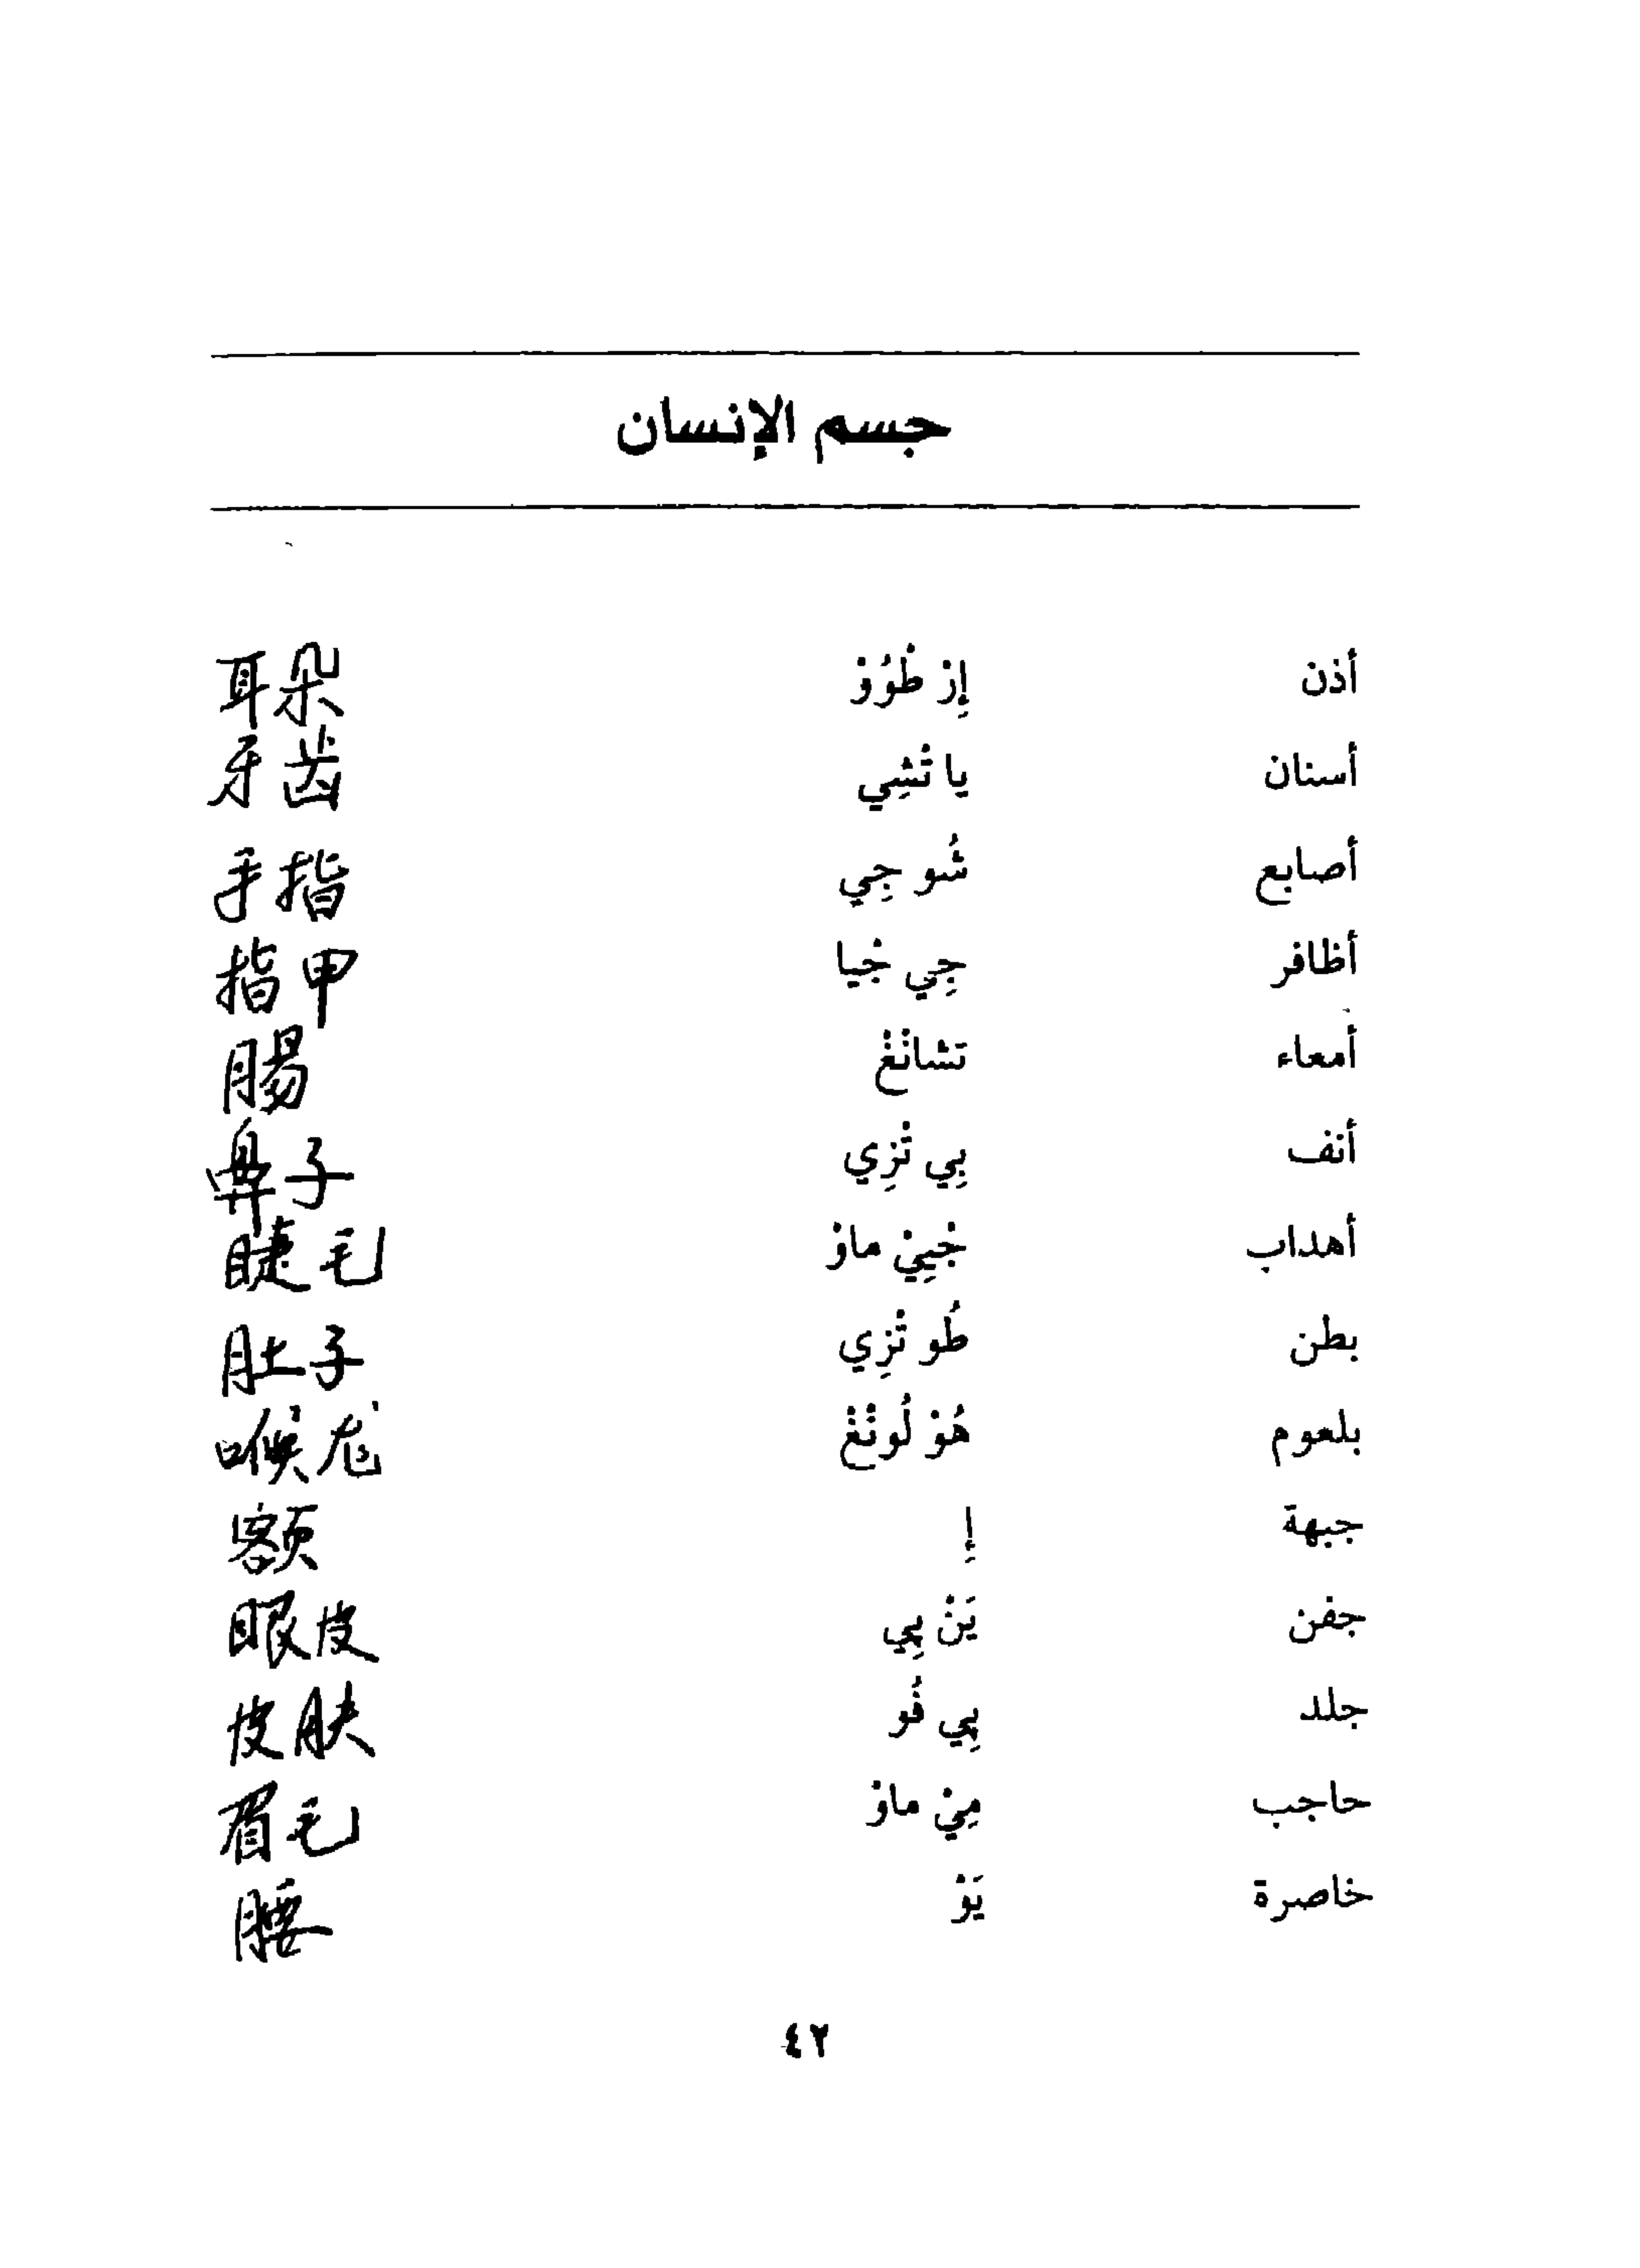 جسم الإنسان
أذن إِرْ طُوُوْ 耳朵
أسنان يا تْشِي 牙齿
أصابع شُو جِي 手指
أظافر جِي جْيا 指甲
أمعاء تشانْغْ 腸
أنف بِي تْزِي 鼻子
أهداب جْيِنْ ماوْ 睫毛
بطن طُو تْزِي 肚子
بلعوم هُوْ لُونْغْ 喉龙
جبهة إِ 额
جفن يَنْ پِي 眼皮
جلد پِي فُو 皮肤
حاجب مِيْ ماوْ 眉毛
خاصرة يَوْ 腰
٤٢